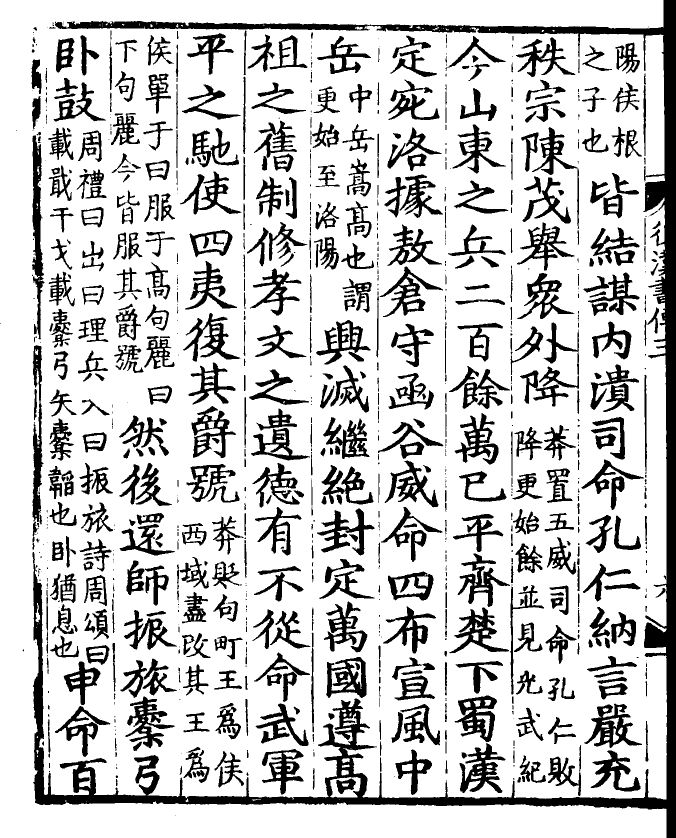 陽侯根
之子也
皆結謀內潰司命孔仁納言嚴充
秩宗陳茂舉衆外降
莽置五威司命孔仁敗
降更始餘並見光武紀
今山東之兵二百餘萬已平齊楚下蜀漢
定宛洛據敖倉守函谷威命四布宣風中
岳
中岳嵩髙也謂
更始至洛陽
興滅繼絶封定萬國遵髙
祖之舊制修孝文之遺德有不從命武軍
平之馳使四夷復其爵號
莽貶句町王爲侯
西域盡改其王爲
侯單于曰服于髙句麗曰
下句麗今皆服其爵號
然後還師振旅櫜弓
卧鼓
周禮曰出曰理兵入曰振旅詩周頌曰
載戢干戈載櫜弓矢櫜韜也卧猶息也
申命百